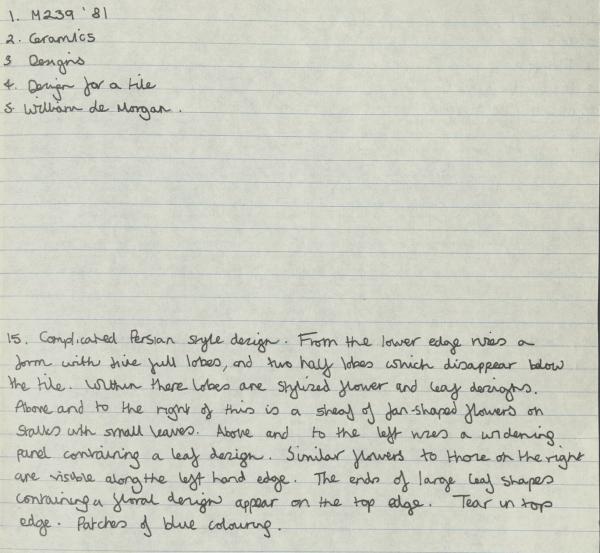 1. M239 '81
2. Ceramics
3 Designs
4. Design for a tile
5. William de Morgan.
15. Complicated Persian style design. From the lower edge rises a
form with five full lobes, and two half lobes which disappear below
the tile. Within these lobes are stylized flower and leaf designs.
Above and to the right of this is a sheaf of fan-shaped flowers on
stalks with small leaves. Above and to the left rises a widening
panel containing a leaf design. Similar flowers to those on the right
are visible along the left hand edge. The ends of large leaf shapes
containing a floral design appear on the top edge. Tear in top
edge. Patches of blue colouring.